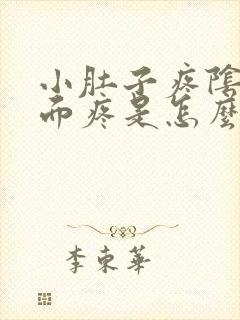 小肚子疼陰
而疼是怎麼
李東華